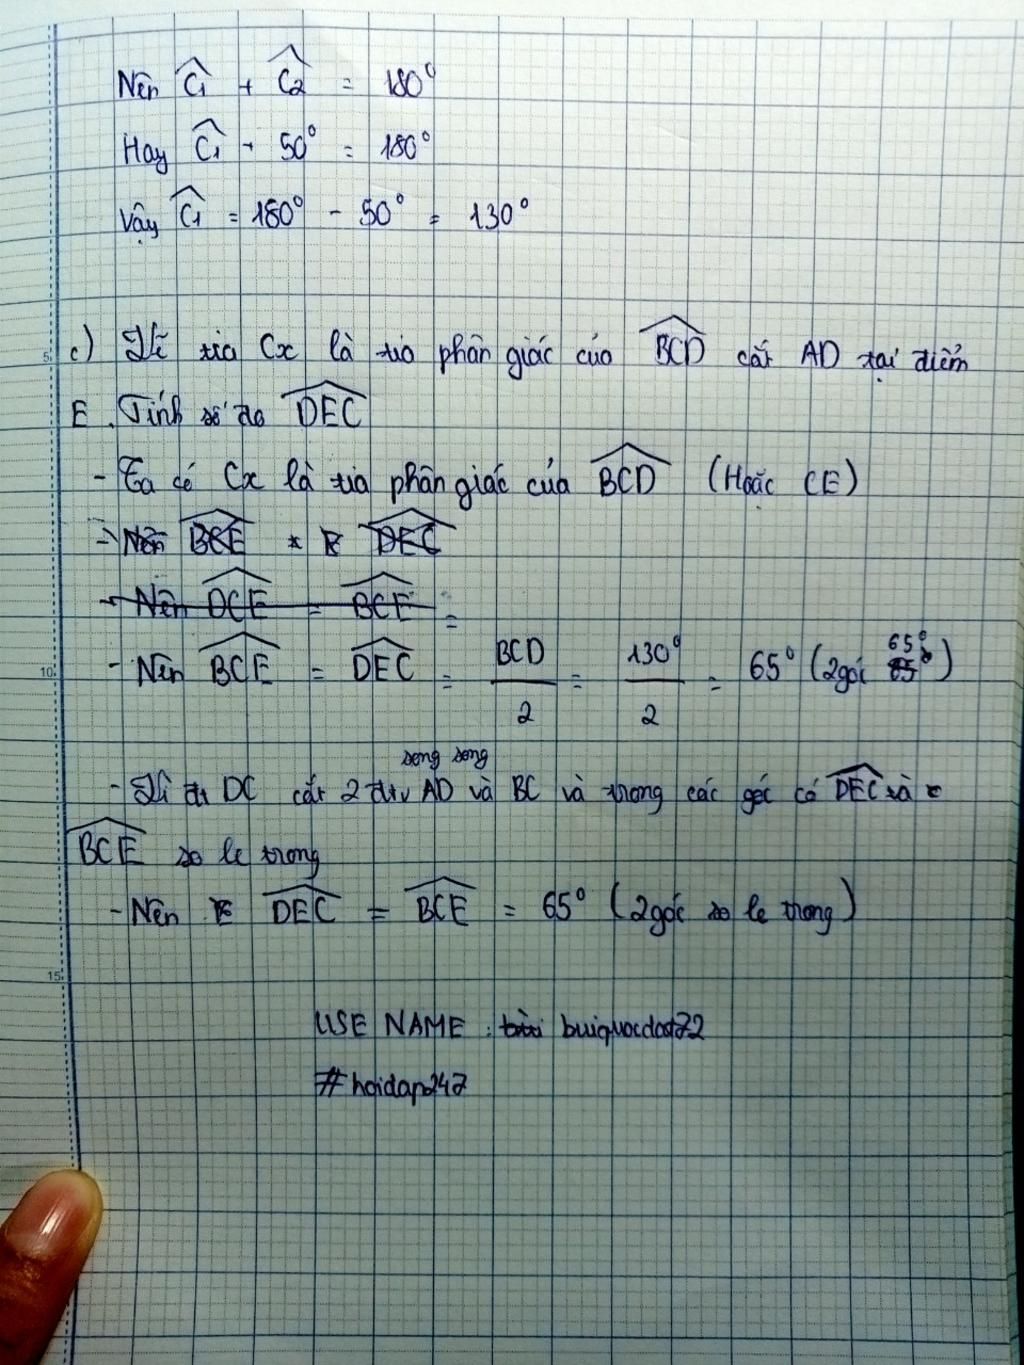 Nên C1 + C2 = 180°
Hay C1 + 50° = 180°
Vậy C1 = 180° - 50° = 130°
5
c) Vẽ tia Cx là tia phân giác của BCD cắt AD tại điểm
E. Tính số đo DEC
- Ta có Cx là tia phân giác của BCD (Hoặc CE)
- Nên BCE = DEC
- Nên DCE = BCE =
10 - Nên BCE = DEC = BCD/2 = 130°/2 = 65° (2góc 65°)
song song
- Vì đt DC cắt 2 đt AD và BC và trong các góc có DEC và
BCE so le trong
- Nên DEC = BCE = 65° (2góc so le trong)
15
USE NAME : buiquocdat72
#hoidap247